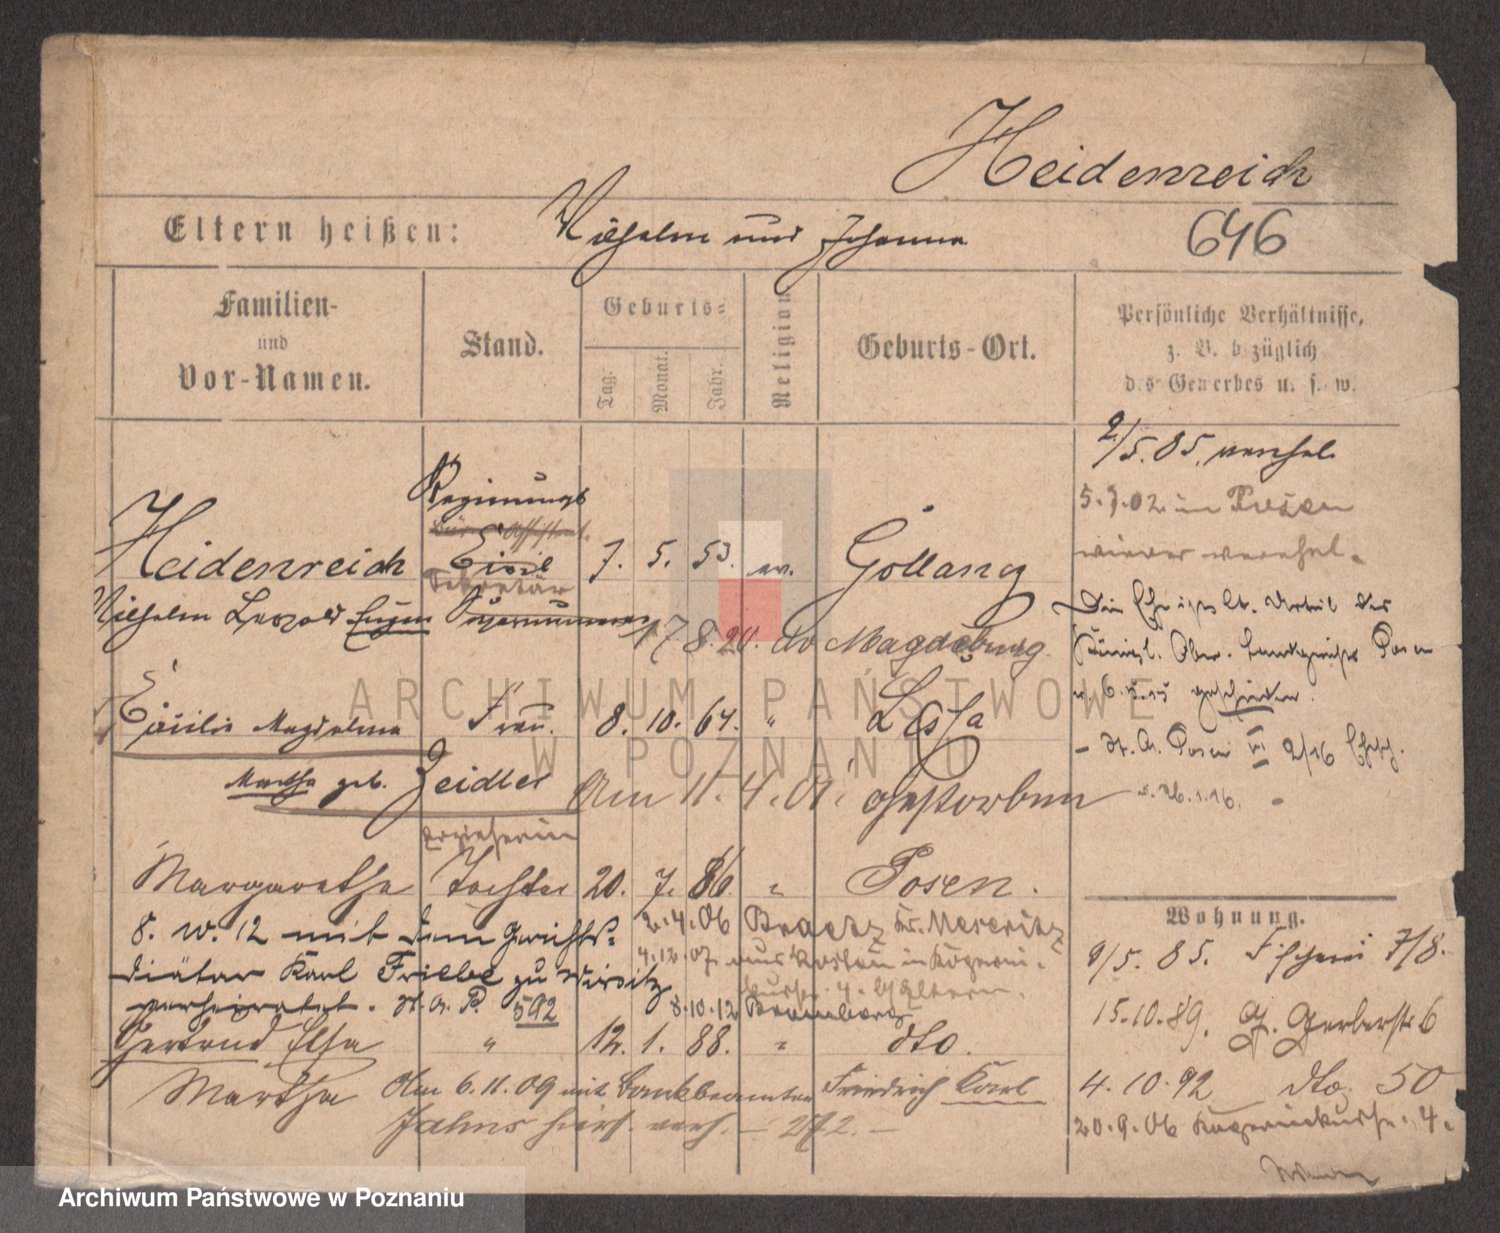 Heidenreich
646
Eltern heißen: Wilhelm und Johanna
Familien-
und
Vor-Namen.
Stand.
Geburts-
Tag.
Monat.
Jahr.
Religion
Geburts-Ort.
Persönliche Verhältnisse,
z. B. bezüglich
des Gewerbes u. s. w.
2/5. 85. verehel.
Regierungs
5.7.02. in Posen
wieder verehel.
Heidenreich
Civil
7. 5. 53. ev. Gollanz
Sekretär
Wilhelm Leopold Eugen
Supernumerar
17 8. do Magdeburg
Die Ehe ist lt. Urteil des
Königl. Ober-Landgerichts Posen
geschieden.
Cäcilie Magdalena
Frau.
8. 10. 64. " Lissa
Martha geb. Zeidler
Am 11.4.01. gestorben
Erzieherin
Margarethe Tochter 20. 7. 86. " Posen.
8. 10. 12 mit dem Gerichts-
diätar Karl Friebe zu Wirsitz
verheiratet. St. A. P. 592
2.4.06 Kr. Meseritz
4.12.07. aus Kosten in
8.10.12 Bromberg
Gertrud Elsa " 12. 1. 88. " dto.
Martha
Am 6.11.09 mit Bankbeamten Friedrich Karl
Jahns hier verh. – 272. –
Wohnung.
9/5. 85. Fischerei 7/8.
15.10.89. G. Gerberstr 6
4.10.92 dto. 50
20.9.06 4.
ARCHIWUM PAŃSTWOWE
W POZNANIU
Archiwum Państwowe w Poznaniu